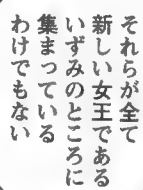 それらが全て
新しい女王である
いずみのところに
集まっている
わけでもない